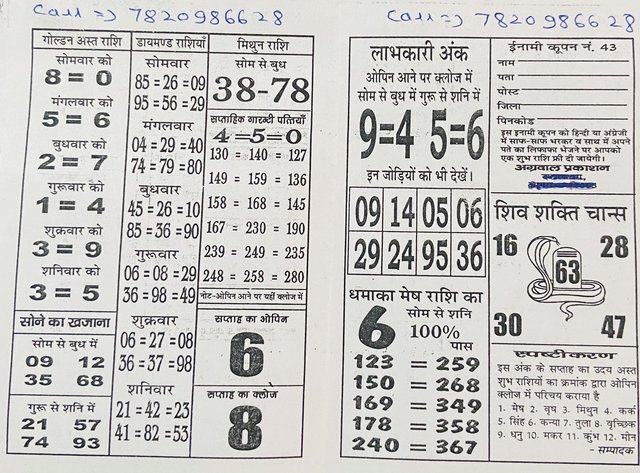 Call => 7820986628
Call => 7820986628
गोल्डन अस्त राशि
सोमवार को
8 = 0
मंगलवार को
5 = 6
बुधवार को
2 = 7
गुरूवार को
1 = 4
शुक्रवार को
3 = 9
शनिवार को
3 = 5
सोने का खजाना
सोम से बुध में
09 12
35 68
गुरू से शनि में
21 57
74 93
डायमण्ड राशियाँ
सोमवार
85=26=09
95=56=29
मंगलवार
04=29=40
74=79=80
बुधवार
45=26=10
85=36=90
गुरूवार
06=08=29
36=98=49
शुक्रवार
06=27=08
36=37=98
शनिवार
21=42=23
41=82=53
मिथुन राशि
सोम से बुध
38-78
सप्ताहिक गारन्टी पत्तियाँ
4=5=0
130 = 140 = 127
149 = 159 = 136
158 = 168 = 145
167 = 230 = 190
239 = 249 = 235
248 = 258 = 280
नोट-ओपिन आने पर यहीं क्लोज में
सप्ताह का ओपिन
6
सप्ताह का क्लोज
8
लाभकारी अंक
ओपिन आने पर क्लोज में
सोम से बुध में गुरू से शनि में
9=4 5=6
इन जोड़ियों को भी देखें।
09 14 05 06
29 24 95 36
धमाका मेष राशि का
6
सोम से शनि
100%
पास
123 = 259
150 = 268
169 = 349
178 = 358
240 = 367
ईनामी कूपन नं. 43
नाम
पता
पोस्ट
जिला
पिनकोड
इस इनामी कूपन को हिन्दी या अंग्रेजी
में साफ-साफ भरकर व साथ में अपने
पते का लिफाफा भेजने पर आपको
एक शुभ राशि फ्री दी जायेगी।
अग्रवाल प्रकाशन
शिव शक्ति चान्स
16 28
63
30 47
स्पष्टीकरण
इस अंक के सप्ताह का उदय अस्त
शुभ राशियों का क्रमांक द्वारा ओपिन
क्लोज में परिचय कराया है
1. मेष 2. वृष 3. मिथुन 4. कर्क
5. सिंह 6. कन्या 7. तुला 8. वृच्छिक
9. धनु 10. मकर 11. कुंभ 12. मीन
- सम्पादक